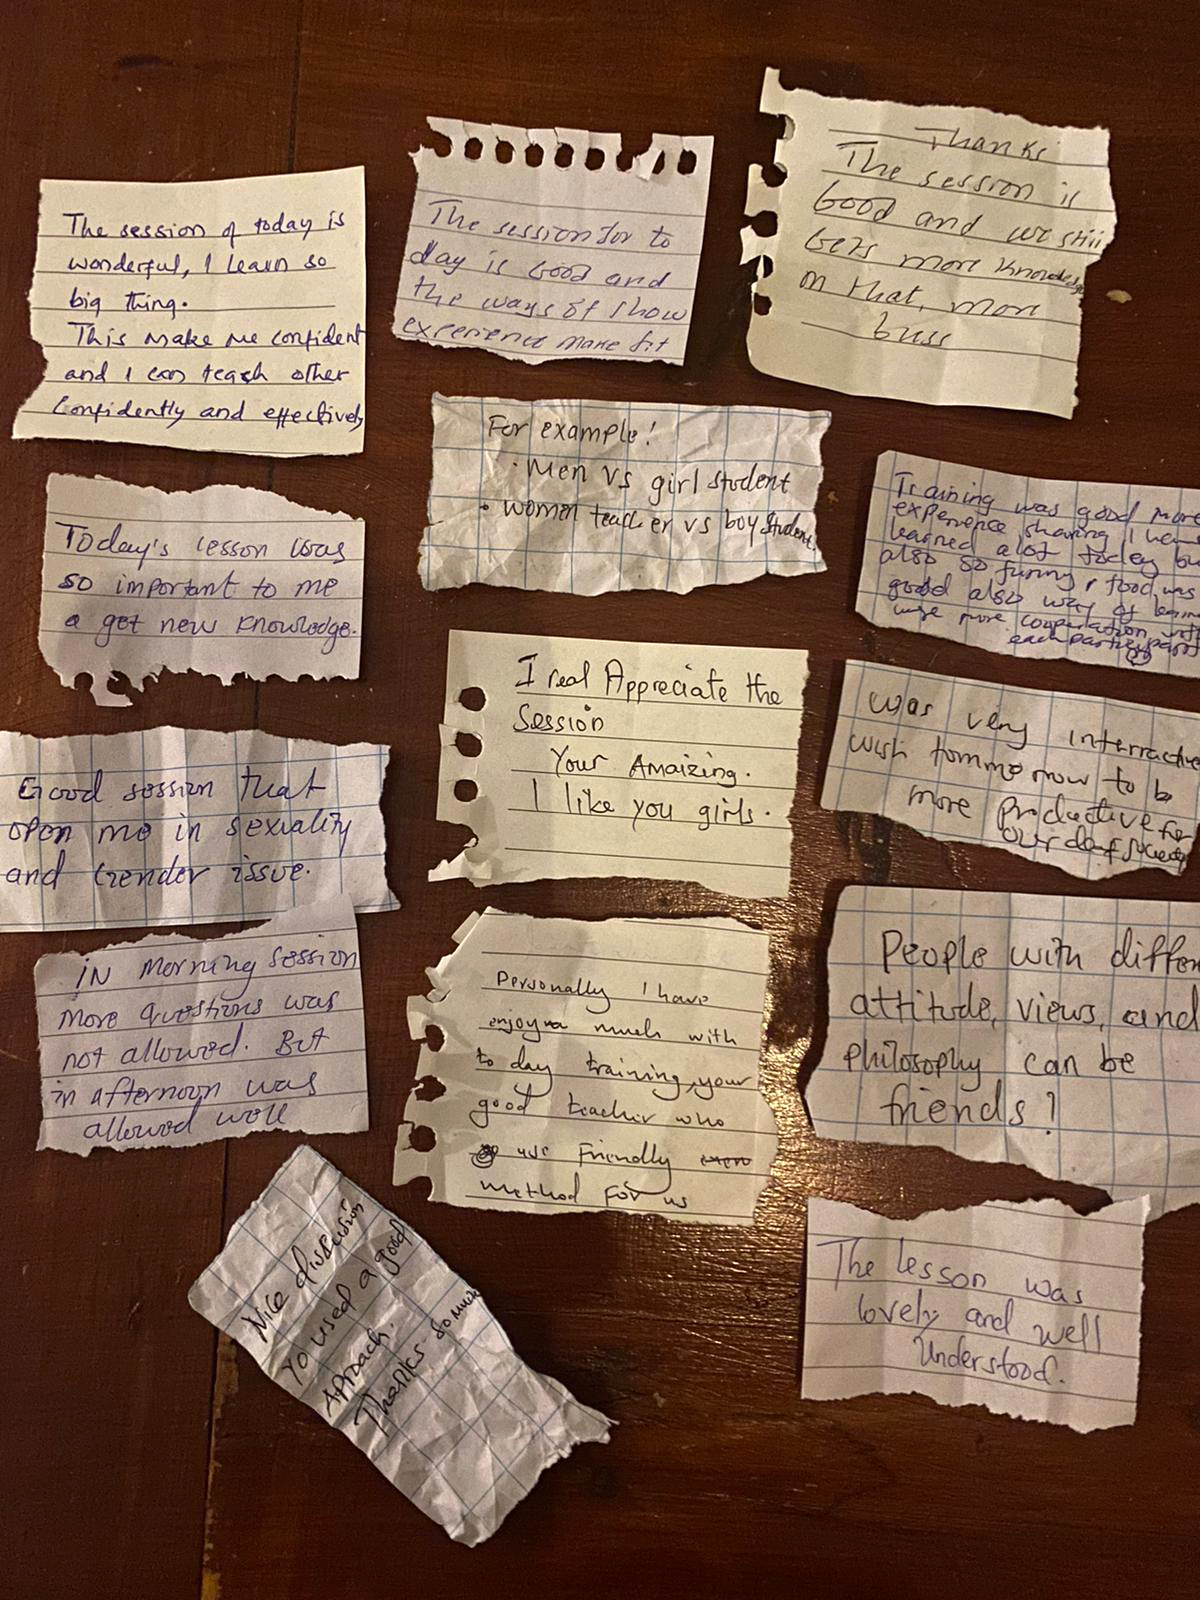 The session of today is
wonderful, I learn so
big thing.
This make me confident
and I can teach other
Confidently and effectively
The session for to
day is Good and
the ways of show
experience make fit
Thanks
The session is
Good and we still
Gets more knowledge
on that, more
buss
For example!
• Men vs girl student
• women teacher vs boy student
Training was good more
experience sharing I have
learned alot today bu
also so funny, food was
good also way of learni
more cooperation with
each
Today's lesson was
so important to me
a get new knowledge.
I real Appreciate the
Session
Your Amaizing.
I like you girls.
was very interractive
wish tommorrow to b
more productive for
our deaf society
Good session that
open me in sexiality
and Gender issue.
People with differen
attitude, views, and
philosophy can be
friends?
IN Morning session
more questions was
not allowed. But
in afternoon was
allowed well
Personally I have
much with
to day training, your
good teacher who
use Friendly
method For us
Nice discussion
Yo used a good
Aproach.
Thanks so much
The lesson was
lovely and well
Understood.